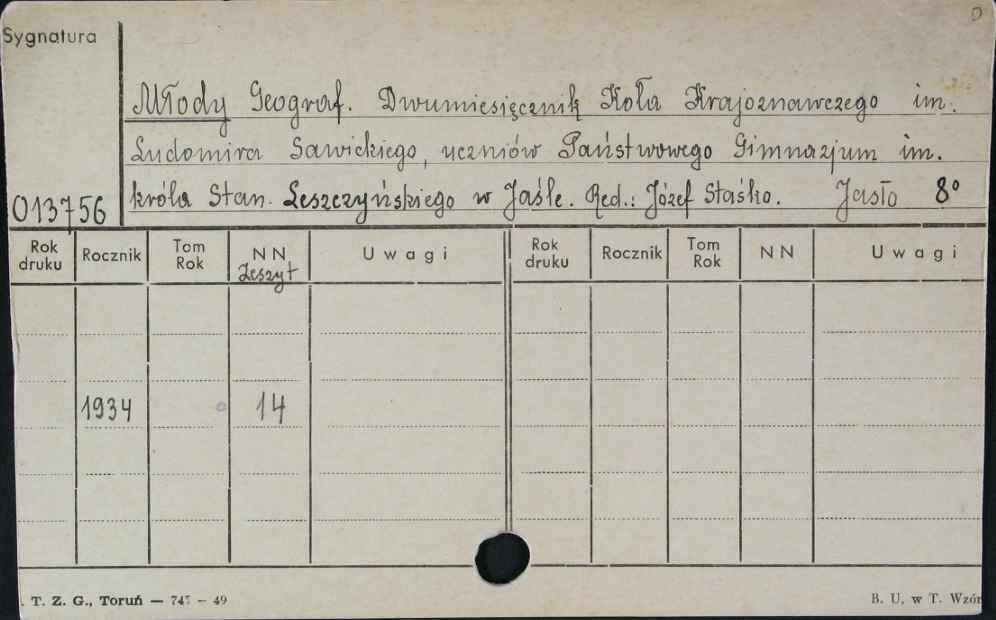 Sygnatura
Młody Geograf. Dwumiesięcznik Koła Krajoznawczego im.
Ludomira Sawickiego, uczniów Państwowego Gimnazjum im.
013756 króla Stan. Leszczyńskiego w Jaśle. Red.: Józef Staśko. Jasło 8°
Rok druku Rocznik Tom Rok NN Zeszyt Uwagi Rok druku Rocznik Tom Rok NN Uwagi
1934 14
T. Z. G., Toruń — 49
B. U. w T. Wzór